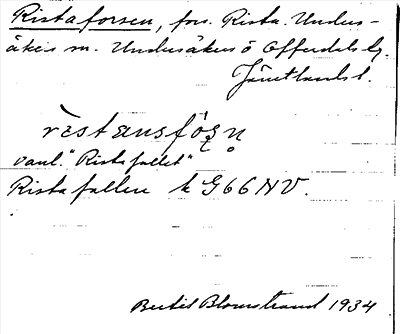 Ristaforsen, fors. Rista. Unders-
åkers sn. Undersåkers o Offerdals tg.
Jämtlands l.
rèstansfỏṣṇ
vanl. "Ristafallet"
Ristafallen k G66NV.
Bertil Blomstrand 1934